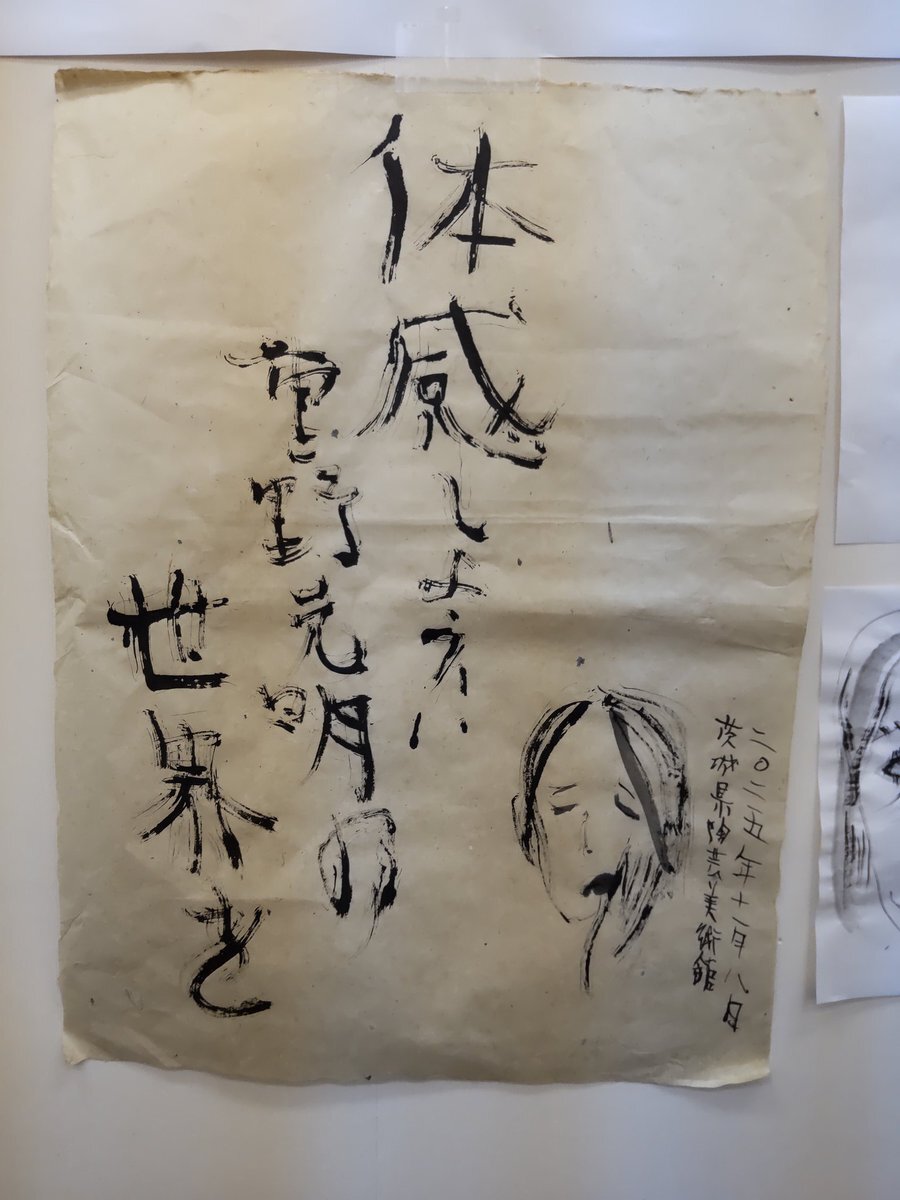 二〇二五年十一月八日
茨城県陶芸美術館
体感しよう!!
重野克明の
世界を